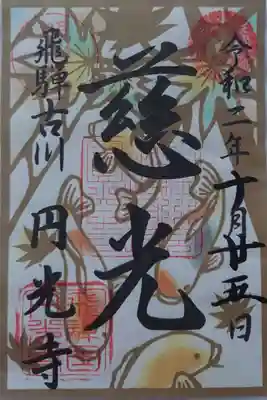 令和二年十月廿五日
慈光
飛騨古川
円光寺